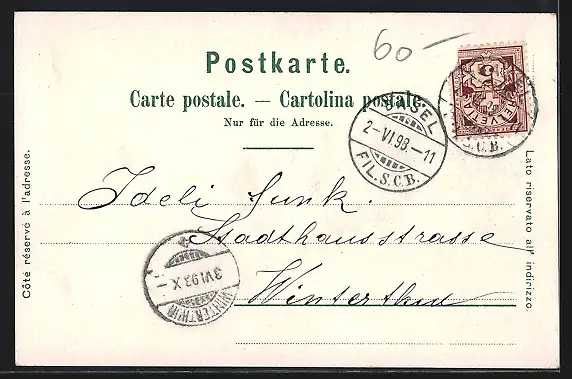 60.-
Postkarte.
Carte postale. — Cartolina postale.
Nur für die Adresse.
5
HELVETIA
BASEL
2-VI.98.-11
FIL.S.C.B.
S.C.B.
Côté réservé à l'adresse.
Lato riservato all' indirizzo.
Ideli Junk.
Stadthausstrasse
Winterthur
3 VI 98 X-
WINTERTHUR